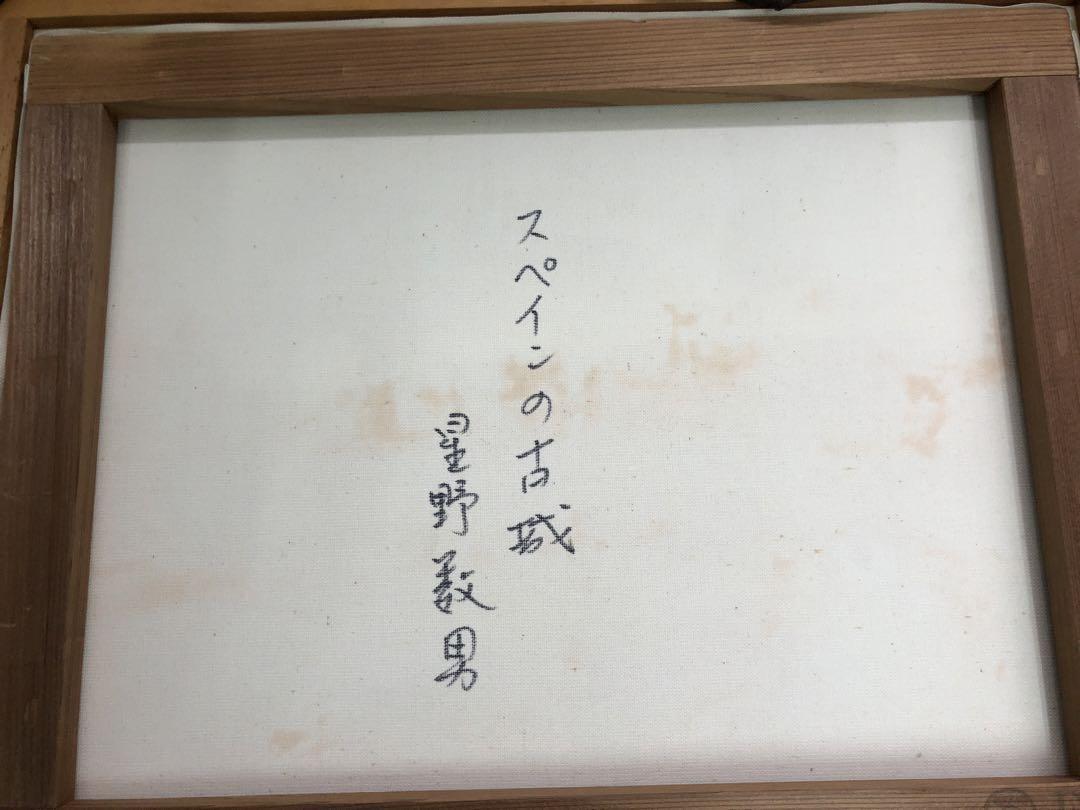 スペインの古城
星野数男